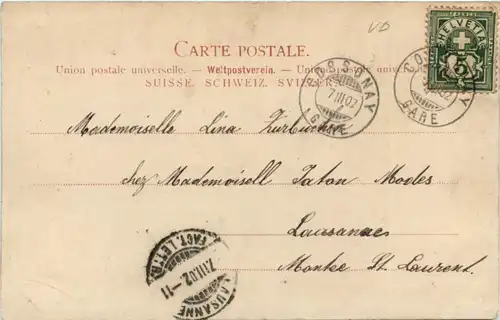 VD
CARTE POSTALE.
Union postale universelle. — Weltpostverein. — Union postale universelle.
SUISSE. SCHWEIZ. SVIZZERA.
HELVETIA
5
COSSONAY
7.III.02
GARE
COSSONAY
GARE
Mademoiselle Lina Zurbuchen
chez Mademoisell Taton Modes
Lausanne
Montée St. Laurent.
FACT. LETTR.
7.III.02.-11
LAUSANNE